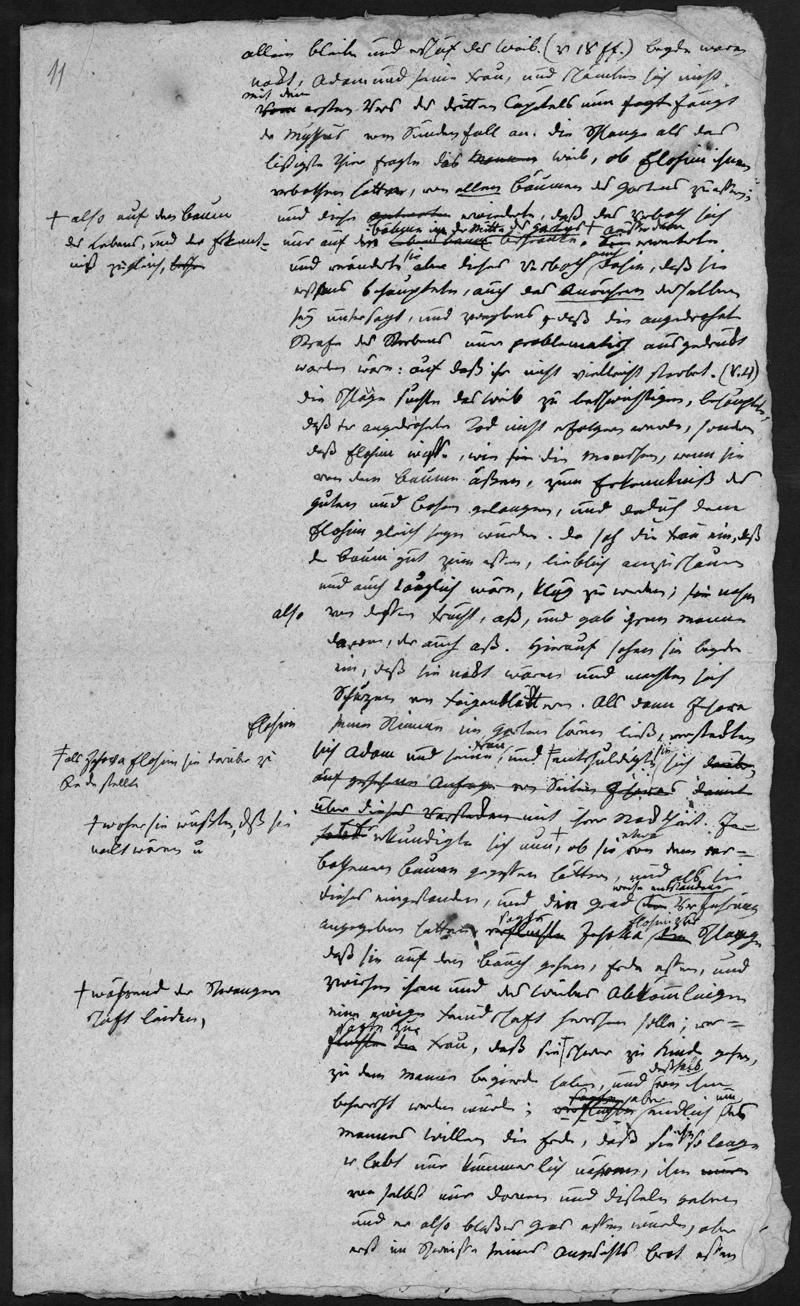 11
allein bleibe und erschuf das Weib. (v 18 ff.) beyde waren
nakt, Adam und seine Frau, und schämten sich nicht.
mit dem
ersten Vers des dritten Capitels nun fängt
der Mythus vom Sündenfall an. die Schlange als das
listigste Thier fragte das Weib, ob Elohim ihnen
verbothen hätte, von allen Bäumen des Gartens zu essen;
und diese erwiederte, daß das Verboth sich
Bäume in der Mitte des Gartens
nur auf die beschränke,
† also auf den Baum
des Lebens, und der Erkennt-
niß zugleich,
und veränderte aber dieses Verboth dahin, daß sie
erstens behauptete, auch das Anrühren desselben
sey untersagt, und zweytens daß die angedrohte
Strafe des Sterbens nur problematisch ausgedrükt
worden wäre: auf daß ihr nicht vielleicht sterbet. (v. 4)
die Schlange suchte das Weib zu beschwichtigen, behauptete,
daß der angedrohete Tod nicht erfolgen werde, sondern
daß Elohim wisse, wie sie die Menschen, wenn sie
von dem Baume äßen, zum Erkenntniß des
guten und bösen gelangen, und dadurch dem
Elohim gleich seyn würden. da sah die Frau ein, daß
der Baum gut zum essen, lieblich anzuschauen
und auch tauglich wäre, klug zu werden; sie nahm
also von dessen Frucht, aß, und gab ihrem Manne
davon, der auch aß. Hierauf sahen sie beyde
ein, daß sie nakt wären und machten sich
Schürzen von Feigenblättern. Als dann Jehova
Elohim seine Stimme im Garten hören ließ, versteckten
sich Adam und seine Frau, und † entschuldigten sich
† als Jehova Elohim sie darüber zu
Rede stellte
auf geschehene Anfrage von Seiten
über dieses Verstecken mit ihrer Nacktheit. Je-
† woher sie wüßten, daß sie
nakt wären u
erkundigte sich nun, † ob sie etwa von dem ver-
bothenen Baum gegessen hätten, und als sie
dieses eingestanden, und den Grad Verführung
angegeben hatten, sagte Jehova Elohim zur Schlange
daß sie auf dem Bauch gehen, Erde essen, und
zwischen ihren und des Weibes Abkömlingen
eine ewige Feindschaft herrschen solle;
† während der Schwanger
schaft leiden,
sagte zur Frau, daß sie † schwer zu Kinde gehen,
zu dem Manne begierde haben, und deshalb von ihm
beherrscht werden würde; endlich um des
Mannes willen die Erde, daß sie ihn so lange
er lebt nur kümmerlich nähren, ihm
von selbst nur Dornen und Disteln geben
und er also bloßes Gras essen würde, oder
erst im Schweiße seines Angesichts Brot essen